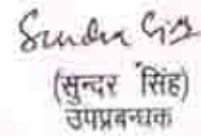 (सुन्दर सिंह)
उपप्रबन्धक